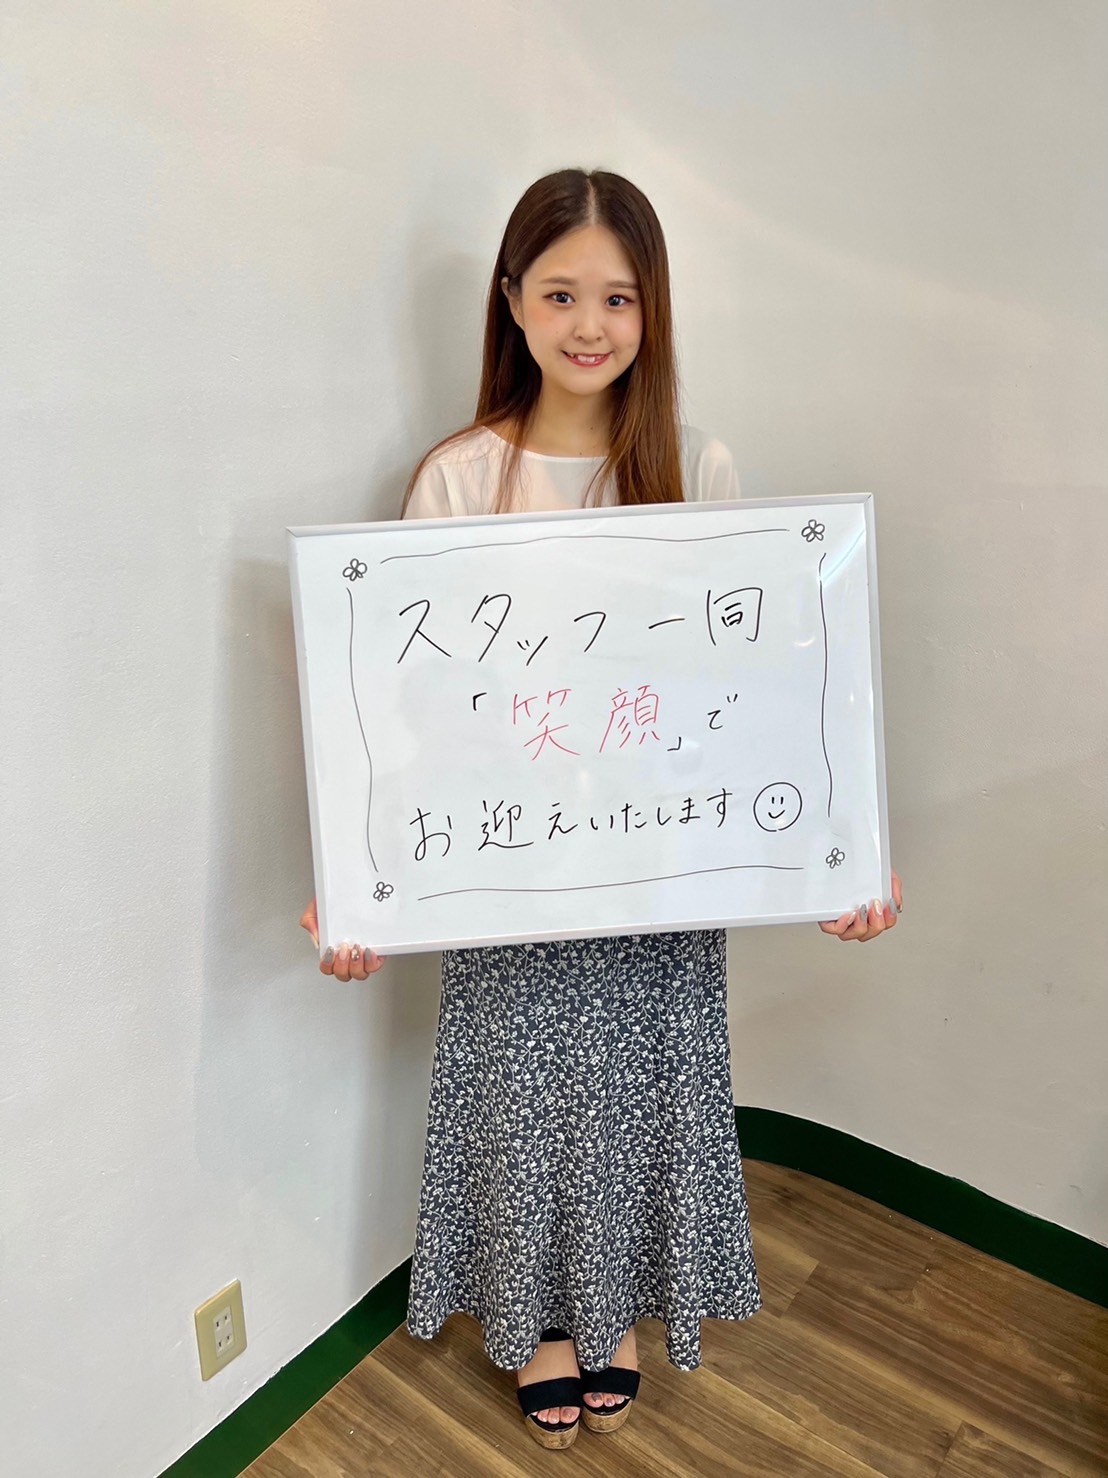 スタッフ一同
「笑顔」で
お迎えいたします